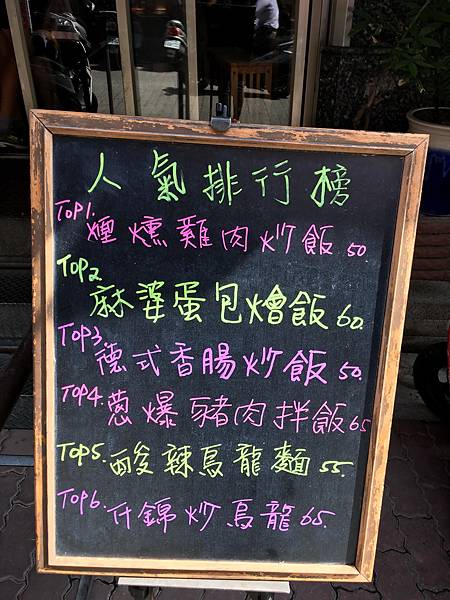 人氣排行榜
TOP1. 煙燻雞肉炒飯 50.
TOP2 麻婆蛋包燴飯 60.
TOP3. 德式香腸炒飯 50.
TOP4. 蔥爆豬肉拌飯 65
TOP5. 酸辣烏龍麵 55.
TOP6. 什錦炒烏龍 65.